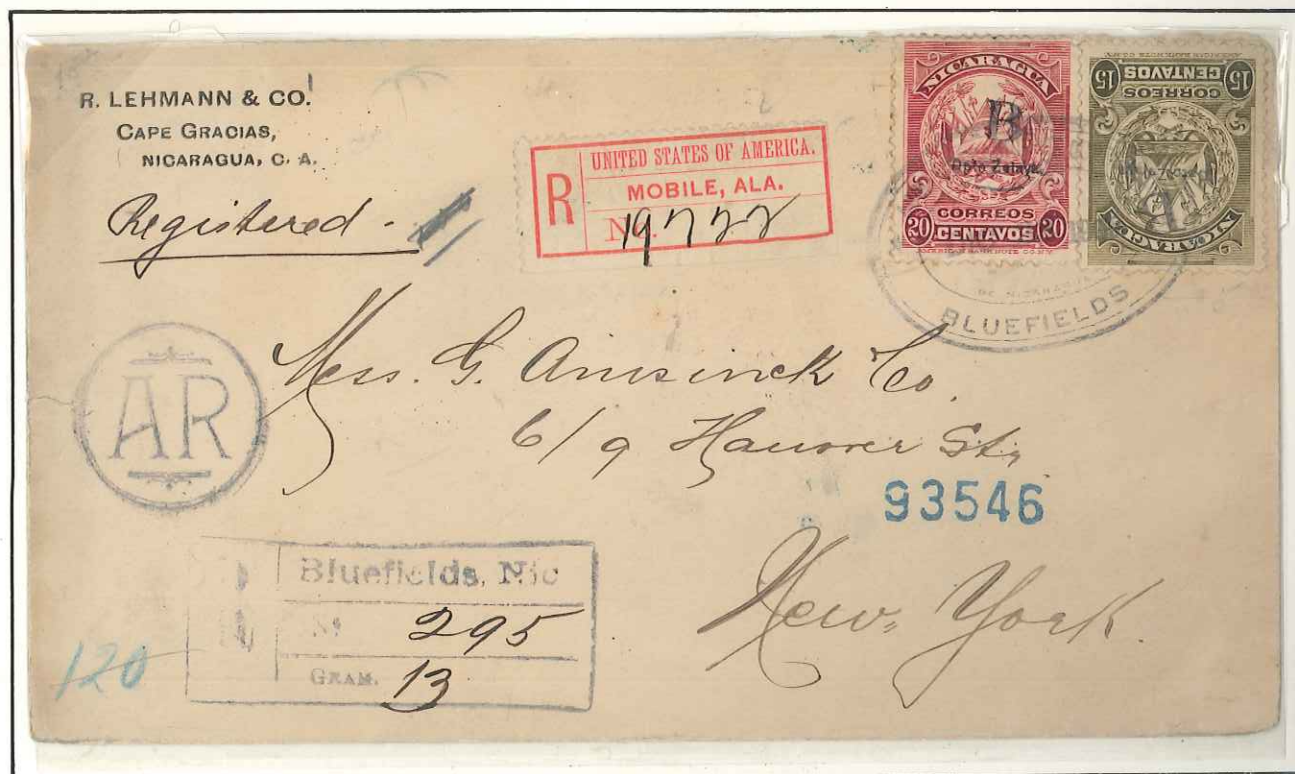 R. LEHMANN & CO.
CAPE GRACIAS,
NICARAGUA, C. A.
Registered -
R
UNITED STATES OF AMERICA.
MOBILE, ALA.
N
19722
NICARAGUA
B
Dpto Zelaya
CORREOS
20 CENTAVOS 20
15 CENTAVOS 15
CORREOS
NICARAGUA
DE NICARAGUA
BLUEFIELDS
AR
Mess. G. Amsinck Co.
6/9 Hanover Str.
93546
New York.
Bluefields, Nic
Nº 295
GRAM. 13
120